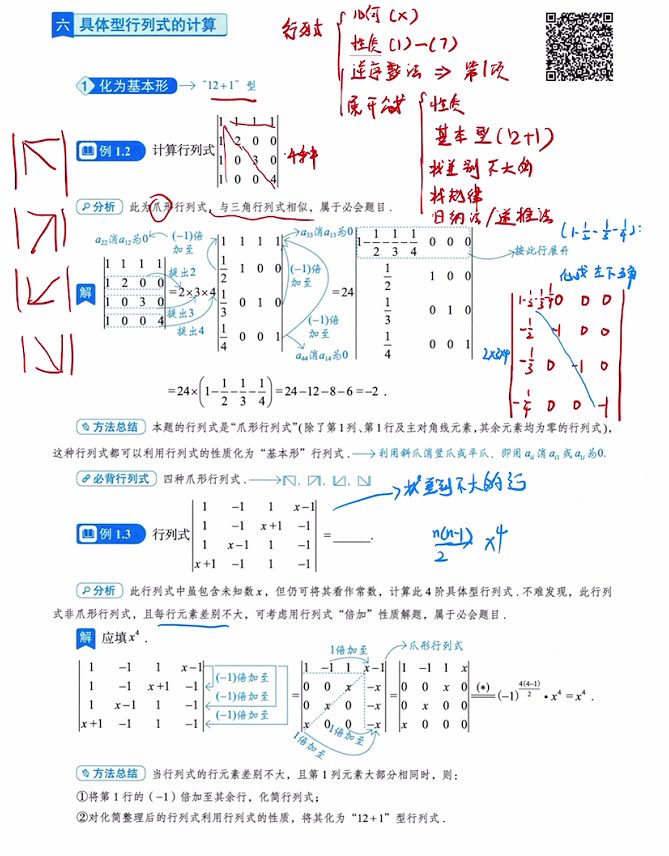 六 具体型行列式的计算
行列式
几何(x)
性质(1)-(7)
逆序数法 ⇒ 第1项
展开公式
性质
基本型(12+1)
找差别不大的
找规律
归纳法/递推法
1 化为基本形 → “12+1”型
例 1.2 计算行列式
1 1 1 1
1 2 0 0
1 0 3 0
1 0 0 4
分析 此为爪形行列式,与三角行列式相似,属于必会题目.
a22消a12为0
(-1)倍
加至
a33消a13为0
(-1)倍
加至
(-1)倍
加至
a44消a14为0
按此行展开
解
1 1 1 1
1 2 0 0
1 0 3 0
1 0 0 4
提出2
提出3
提出4
=2×3×4
1 1 1 1
1/2 1 0 0
1/3 0 1 0
1/4 0 0 1
=24
1-1/2-1/3-1/4 0 0 0
1/2 1 0 0
1/3 0 1 0
1/4 0 0 1
(1-1/2-1/3-1/4):
化成左下三角
2×3×4
1-1/2-1/3-1/4 0 0 0
-1/2 -1 0 0
-1/3 0 -1 0
-1/4 0 0 -1
=24×(1-1/2-1/3-1/4)=24-12-8-6=-2 .
方法总结 本题的行列式是“爪形行列式”(除了第1列、第1行及主对角线元素,其余元素均为零的行列式),
这种行列式都可以利用行列式的性质化为“基本形”行列式. → 利用斜爪消竖爪或平爪,即用aii消ai1或a1i为0.
必背行列式 四种爪形行列式.
找差别不大的行
例 1.3 行列式
1 -1 1 x-1
1 -1 x+1 -1
1 x-1 1 -1
x+1 -1 1 -1
=______.
n(n-1)/2 x4
分析 此行列式中虽包含未知数x,但仍可将其看作常数,计算此4阶具体型行列式.不难发现,此行列
式非爪形行列式,且每行元素差别不大,可考虑用行列式“倍加”性质解题,属于必会题目.
解 应填x⁴.
1 -1 1 x-1
1 -1 x+1 -1
1 x-1 1 -1
x+1 -1 1 -1
(-1)倍加至
(-1)倍加至
(-1)倍加至
=
1倍加至
1 -1 1 x-1
0 0 x -x
0 x 0 -x
x 0 0 -x
1倍加至
1倍加至
爪形行列式
=
1 -1 1 x
0 0 x 0
0 x 0 0
x 0 0 0
(*)
=(-1)^(4(4-1)/2)·x⁴=x⁴ .
方法总结 当行列式的行元素差别不大,且第1列元素大部分相同时,则:
①将第1行的(-1)倍加至其余行,化简行列式;
②对化简整理后的行列式利用行列式的性质,将其化为“12+1”型行列式.